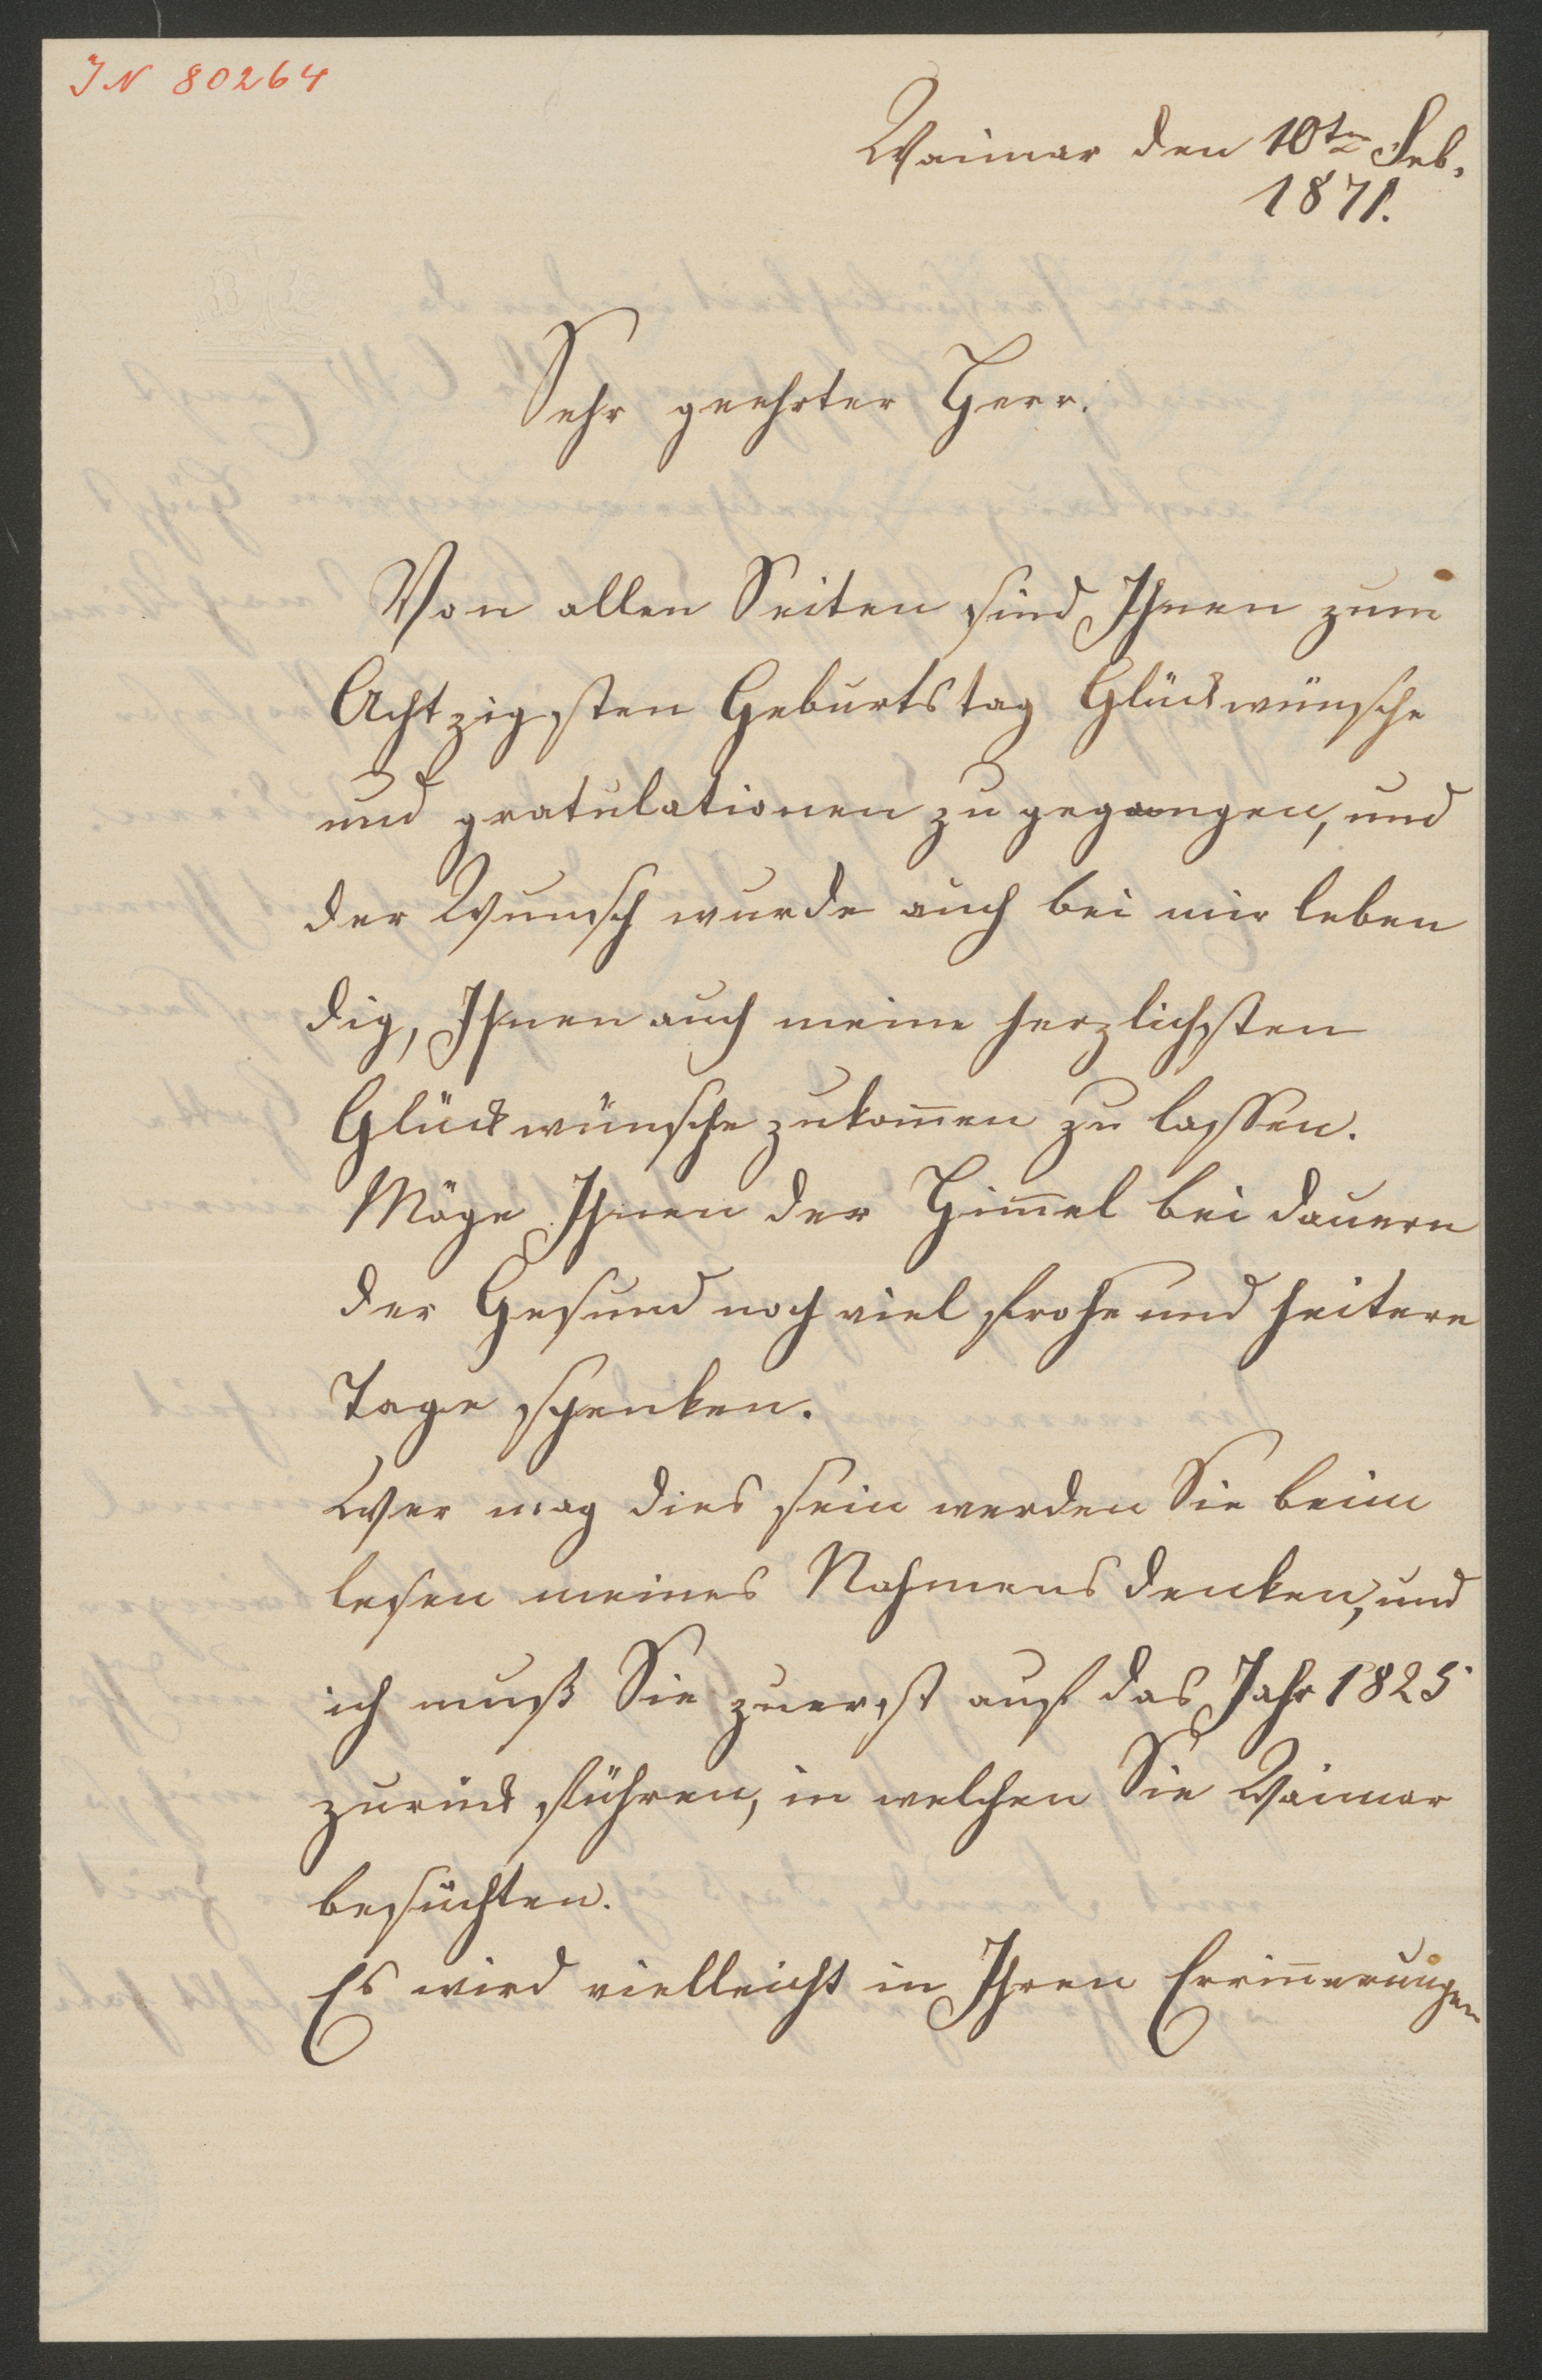 IN 80264
Weimar den 10ten Feb.
1871.
Sehr geehrter Herr.
Von allen Seiten sind Ihnen zum
Achtzigsten Geburtstag Glückwünsche
und gratulationen zu gegangen, und
der Wunsch wurde auch bei mir leben
dig, Ihnen auch meine herzlichsten
Glückwünsche zukom̄en zu lassen.
Möge Ihnen der Him̄el bei dauern
der Gesund noch viel frohe und heitere
Tage schenken.
Wer mag dies sein werden Sie beim
lesen meines Nahmens denken, und
ich muß Sie zuerst auf das Jahr 1825
zurück führen, in welchen Sie Weimar
besuchten.
Es wird vielleicht in Ihren Errin̄erungen